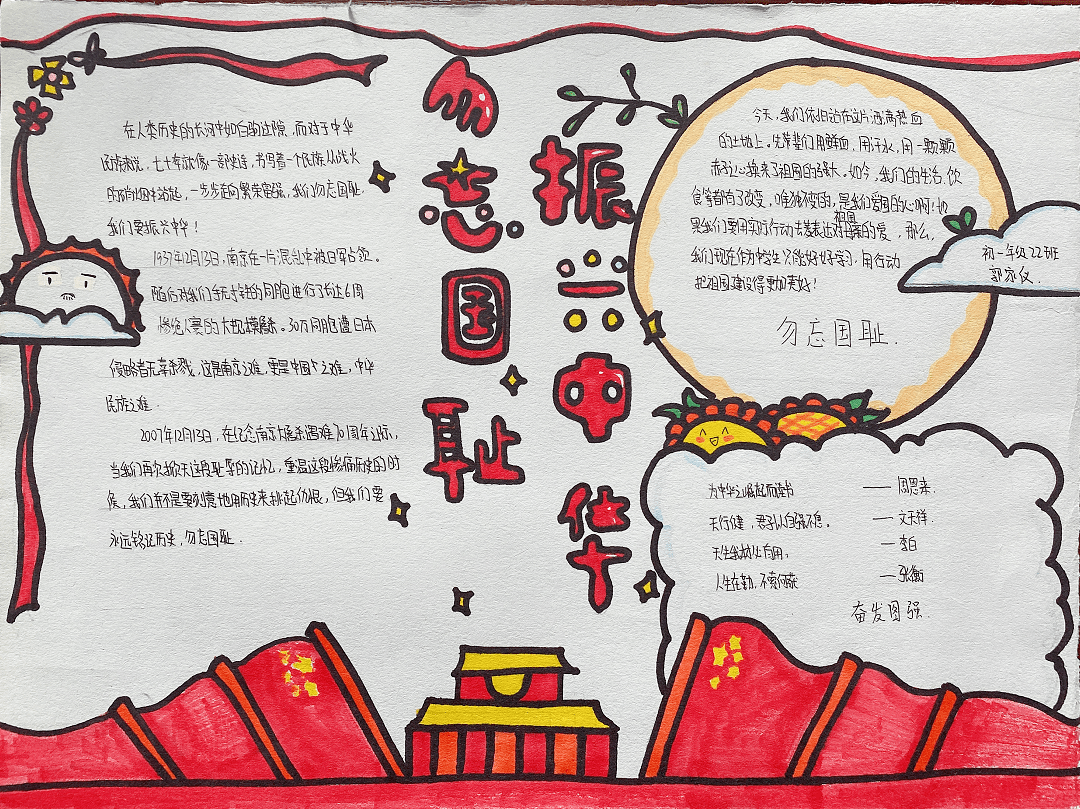 勿忘国耻
振兴中华
在人类历史的长河中如白驹过隙,而对于中华
民族来说,七十年就像一部史诗,书写着一个民族从战火
中昂首起,一步步走向繁荣富强,我们勿忘国耻
我们要振兴中华!
1937年12月13日,南京在一片混乱中被日军占领。
随后对我们手无寸铁的同胞进行了长达6周
惨绝人寰的大规模屠杀。30万同胞遭日本
侵略者无辜杀戮,这是南京之难,更是中国之难,中华
民族之难.
2007年12月13日,在纪念南京大屠杀遇难70周年之际,
当我们再次掀开这段耻辱的记忆,重温这段惨痛历史的时
候,我们并不是要刻意地用历史来挑起仇恨,但我们要
永远铭记历史,勿忘国耻.
今天,我们依旧站在这片洒满热血
的土地上。先辈们用鲜血,用汗水,用一颗颗
赤子之心换来了祖国的强大。如今,我们的生活,饮
食等都有了改变,唯独不变的,是我们爱国的心啊!如
果我们要用实际行动去表达对祖国的爱,那么,
我们现在作为中学生只能好好学习,用行动
把祖国建设得更加美好!
勿忘国耻.
初一年级22班
郭亦仪.
为中华之崛起而读书 ——周恩来.
天行健,君子以自强不息。 ——文天祥.
天生我材必有用, —李白
人生在勤,不索何获 —张衡
奋发图强.